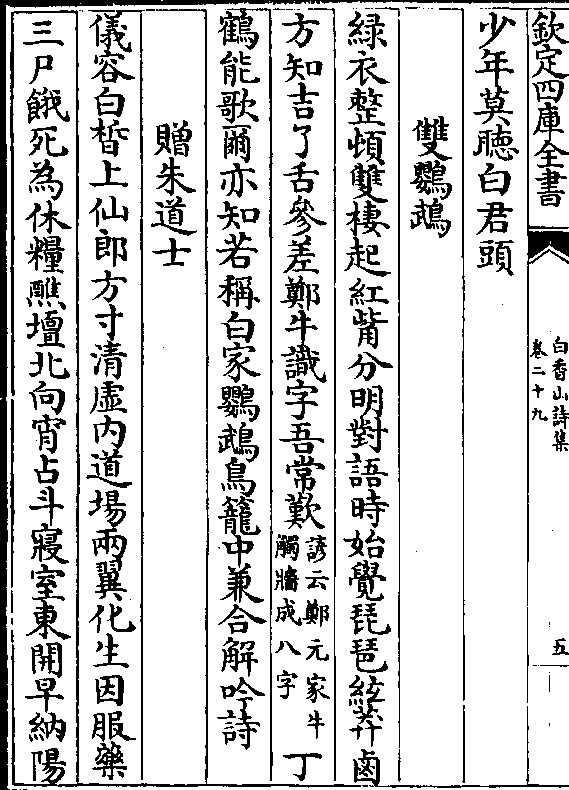 欽定四庫全書
白香山詩集
卷二十九
五
少年莫聽白君頭
雙鸚鵡
緑衣整頓雙棲起紅觜分明對語時始覺琵琶絃莽鹵
方知吉了舌參差鄭牛識字吾常歎
諺云鄭元家牛
觸牆成八字
丁
鶴能歌爾亦知若稱白家鸚鵡鳥籠中兼合解吟詩
贈朱道士
儀容白晳上仙郎方寸清虚内道場兩翼化生因服藥
三尸餓死為休糧醮壇北向宵占斗寢室東開早納陽